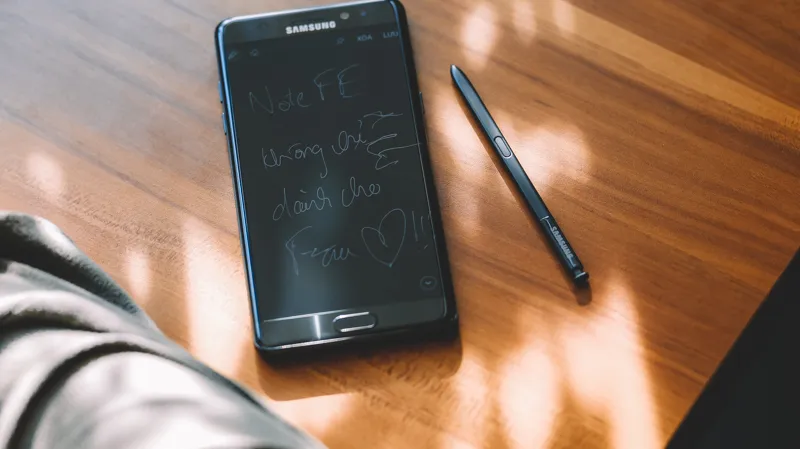 SAMSUNG
XÓA LƯU
Note FE
không chỉ
dành cho
Fan ♡!!
SAMSUNG